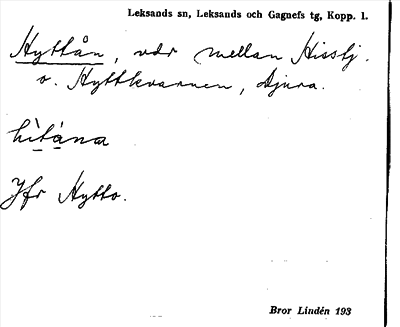 Leksands sn, Leksands och Gagnefs tg, Kopp. 1.
Hyttån, vdr mellan Hisslj.
o. Hyttkvarnen, Djura.
hìtána
Jfr Hytto.
Bror Lindén 193